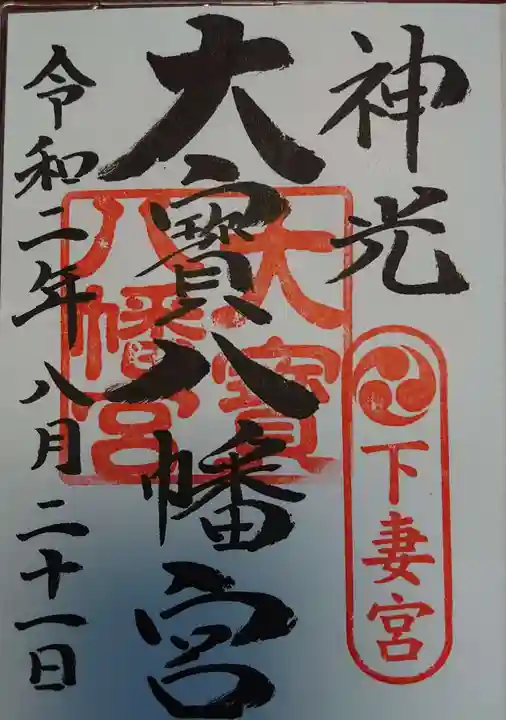 神光
下妻宮
大寶八幡宮
大寶
八幡宮
令和二年八月二十一日